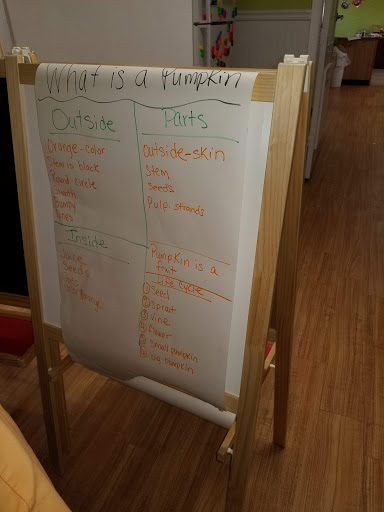 What is a Pumpkin
Outside
Orange-color
Stem is black
Round circle
Smooth
Bumpy
Lines
Parts
Outside-skin
Stem
Seeds
Pulp: strands
Inside
Juice
Seeds
Pumpkin is a
fruit
Life Cycle
① Seed
② Sprout
③ Vine
④ Flower
⑤ Small pumpkin
⑥ pumpkin